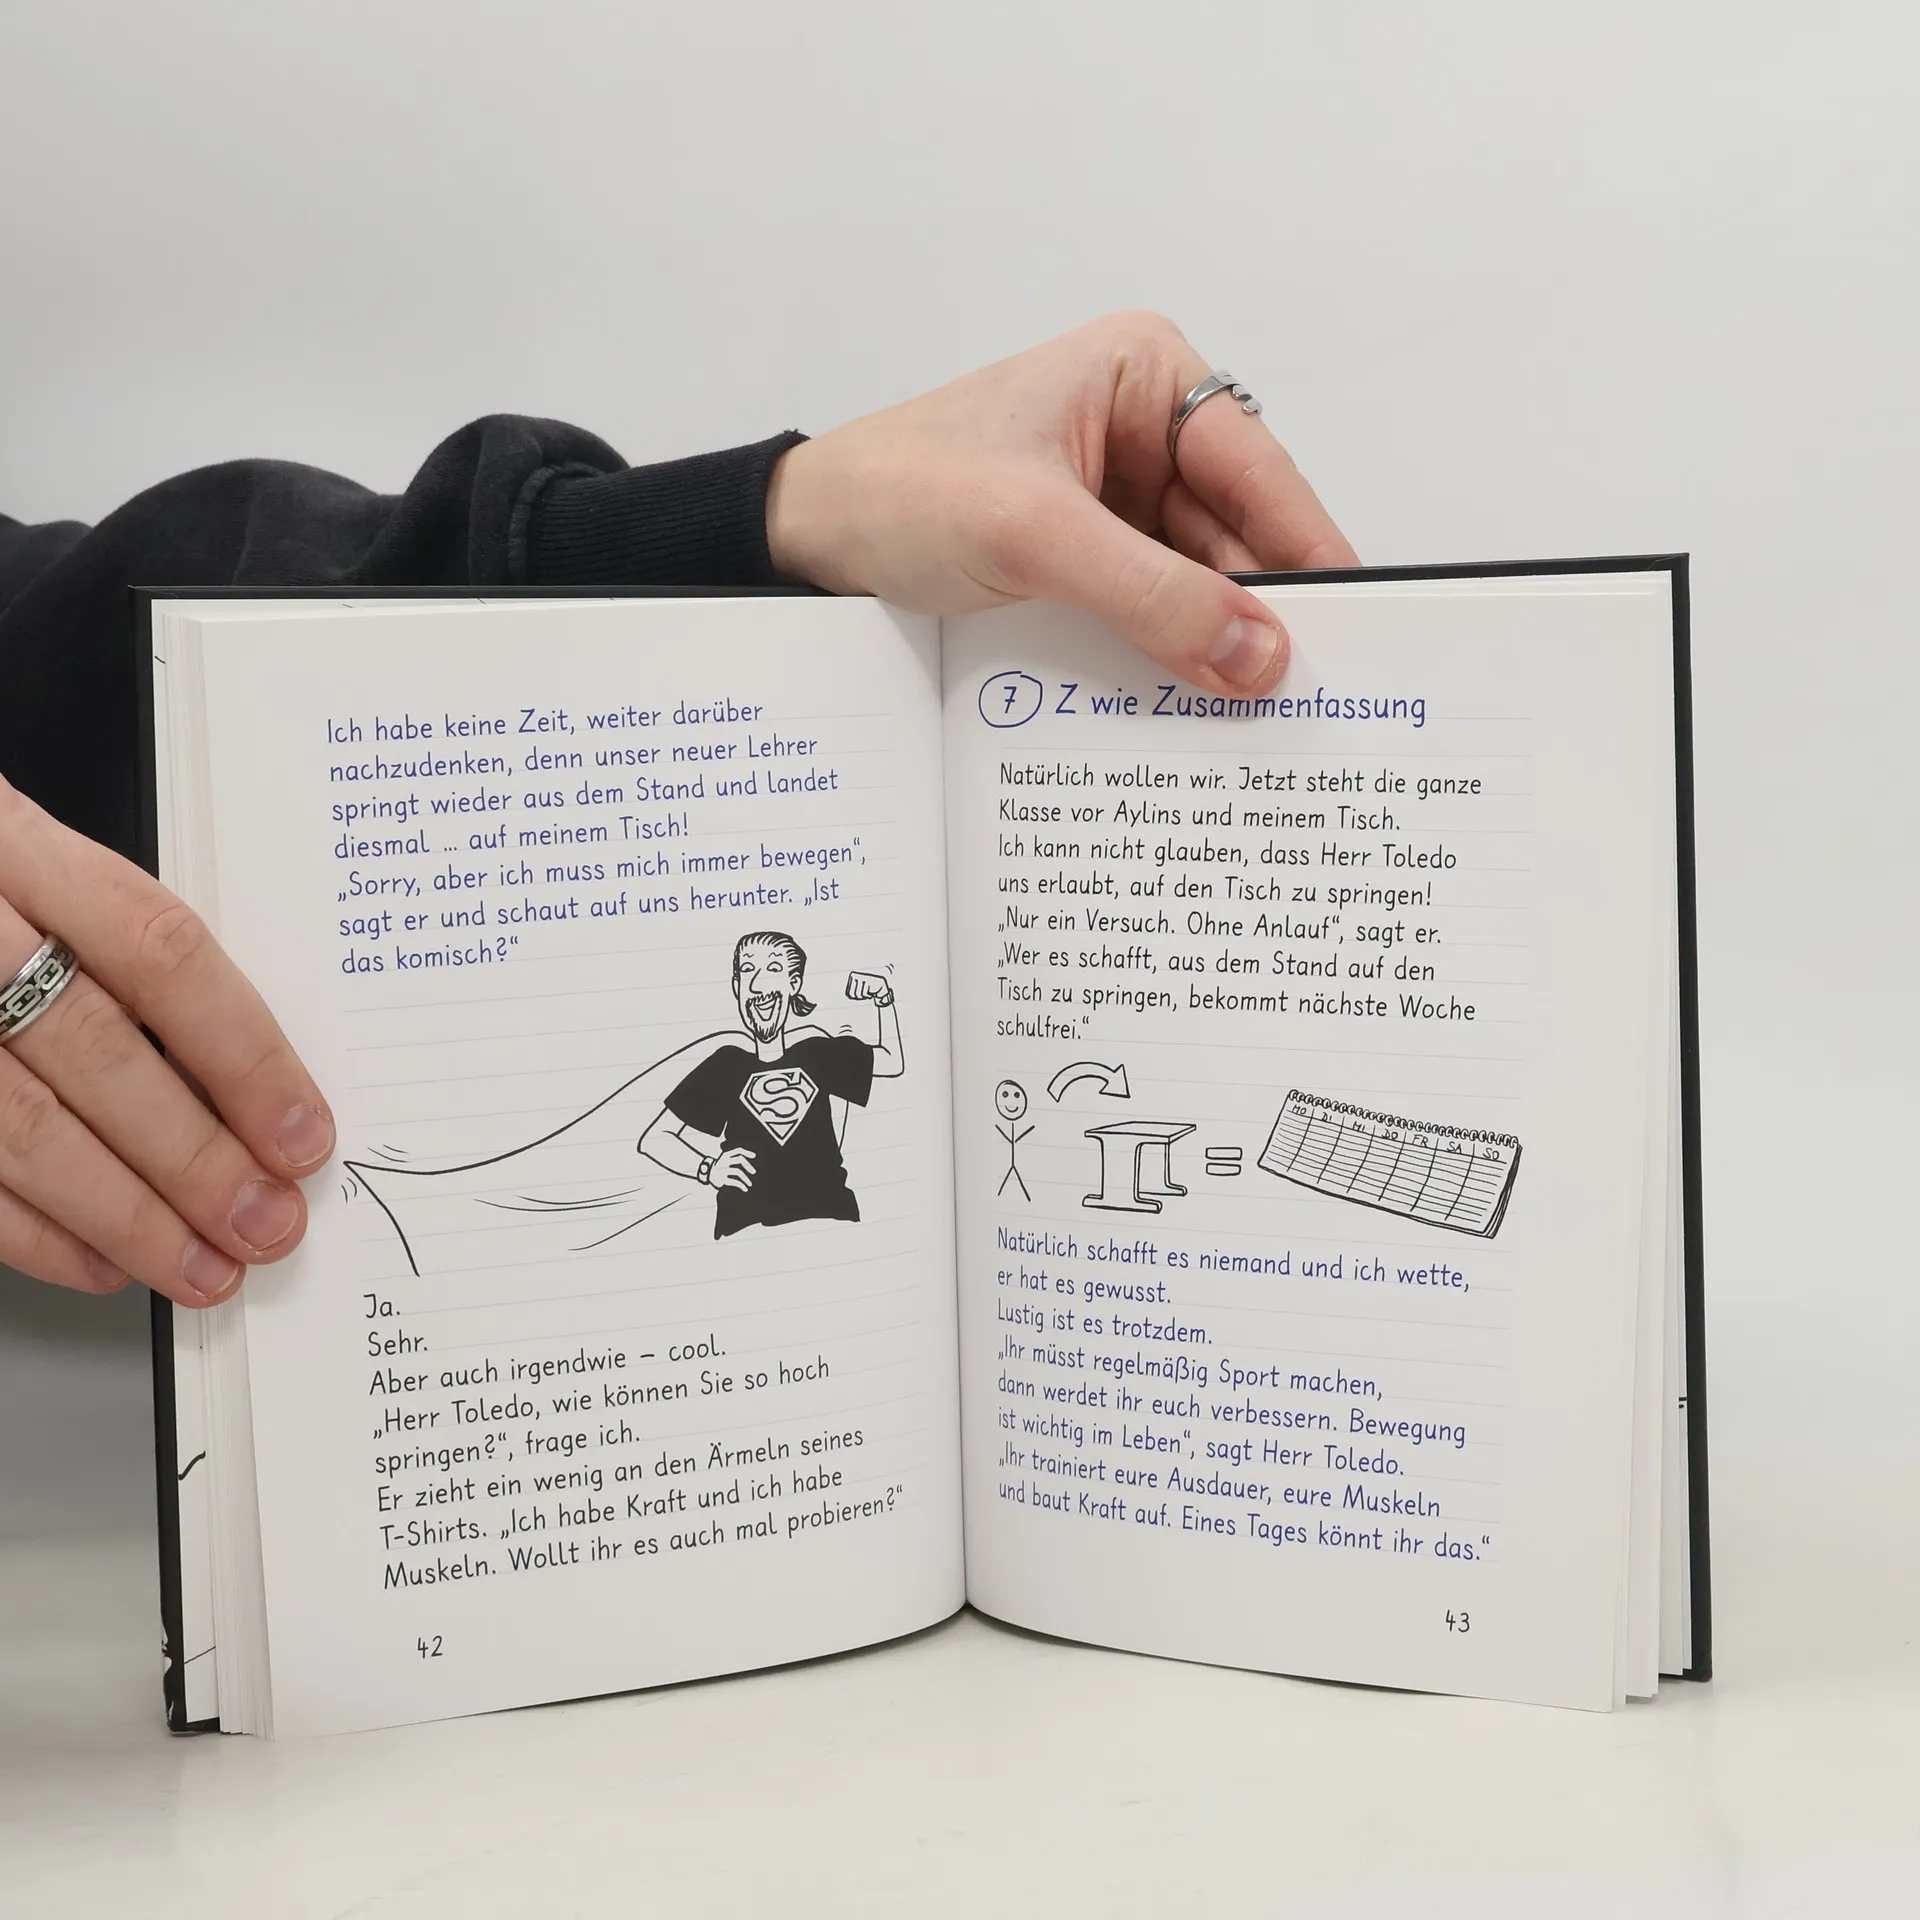 Ich habe keine Zeit, weiter darüber
nachzudenken, denn unser neuer Lehrer
springt wieder aus dem Stand und landet
diesmal ... auf meinem Tisch!
„Sorry, aber ich muss mich immer bewegen“,
sagt er und schaut auf uns herunter. „Ist
das komisch?“
S
Ja.
Sehr.
Aber auch irgendwie – cool.
„Herr Toledo, wie können Sie so hoch
springen?“, frage ich.
Er zieht ein wenig an den Ärmeln seines
T-Shirts. „Ich habe Kraft und ich habe
Muskeln. Wollt ihr es auch mal probieren?“
42
7 Z wie Zusammenfassung
Natürlich wollen wir. Jetzt steht die ganze
Klasse vor Aylins und meinem Tisch.
Ich kann nicht glauben, dass Herr Toledo
uns erlaubt, auf den Tisch zu springen!
„Nur ein Versuch. Ohne Anlauf“, sagt er.
„Wer es schafft, aus dem Stand auf den
Tisch zu springen, bekommt nächste Woche
schulfrei.“
=
MO DI MI DO FR SA SO
Natürlich schafft es niemand und ich wette,
er hat es gewusst.
Lustig ist es trotzdem.
„Ihr müsst regelmäßig Sport machen,
dann werdet ihr euch verbessern. Bewegung
ist wichtig im Leben“, sagt Herr Toledo.
„Ihr trainiert eure Ausdauer, eure Muskeln
und baut Kraft auf. Eines Tages könnt ihr das.“
43